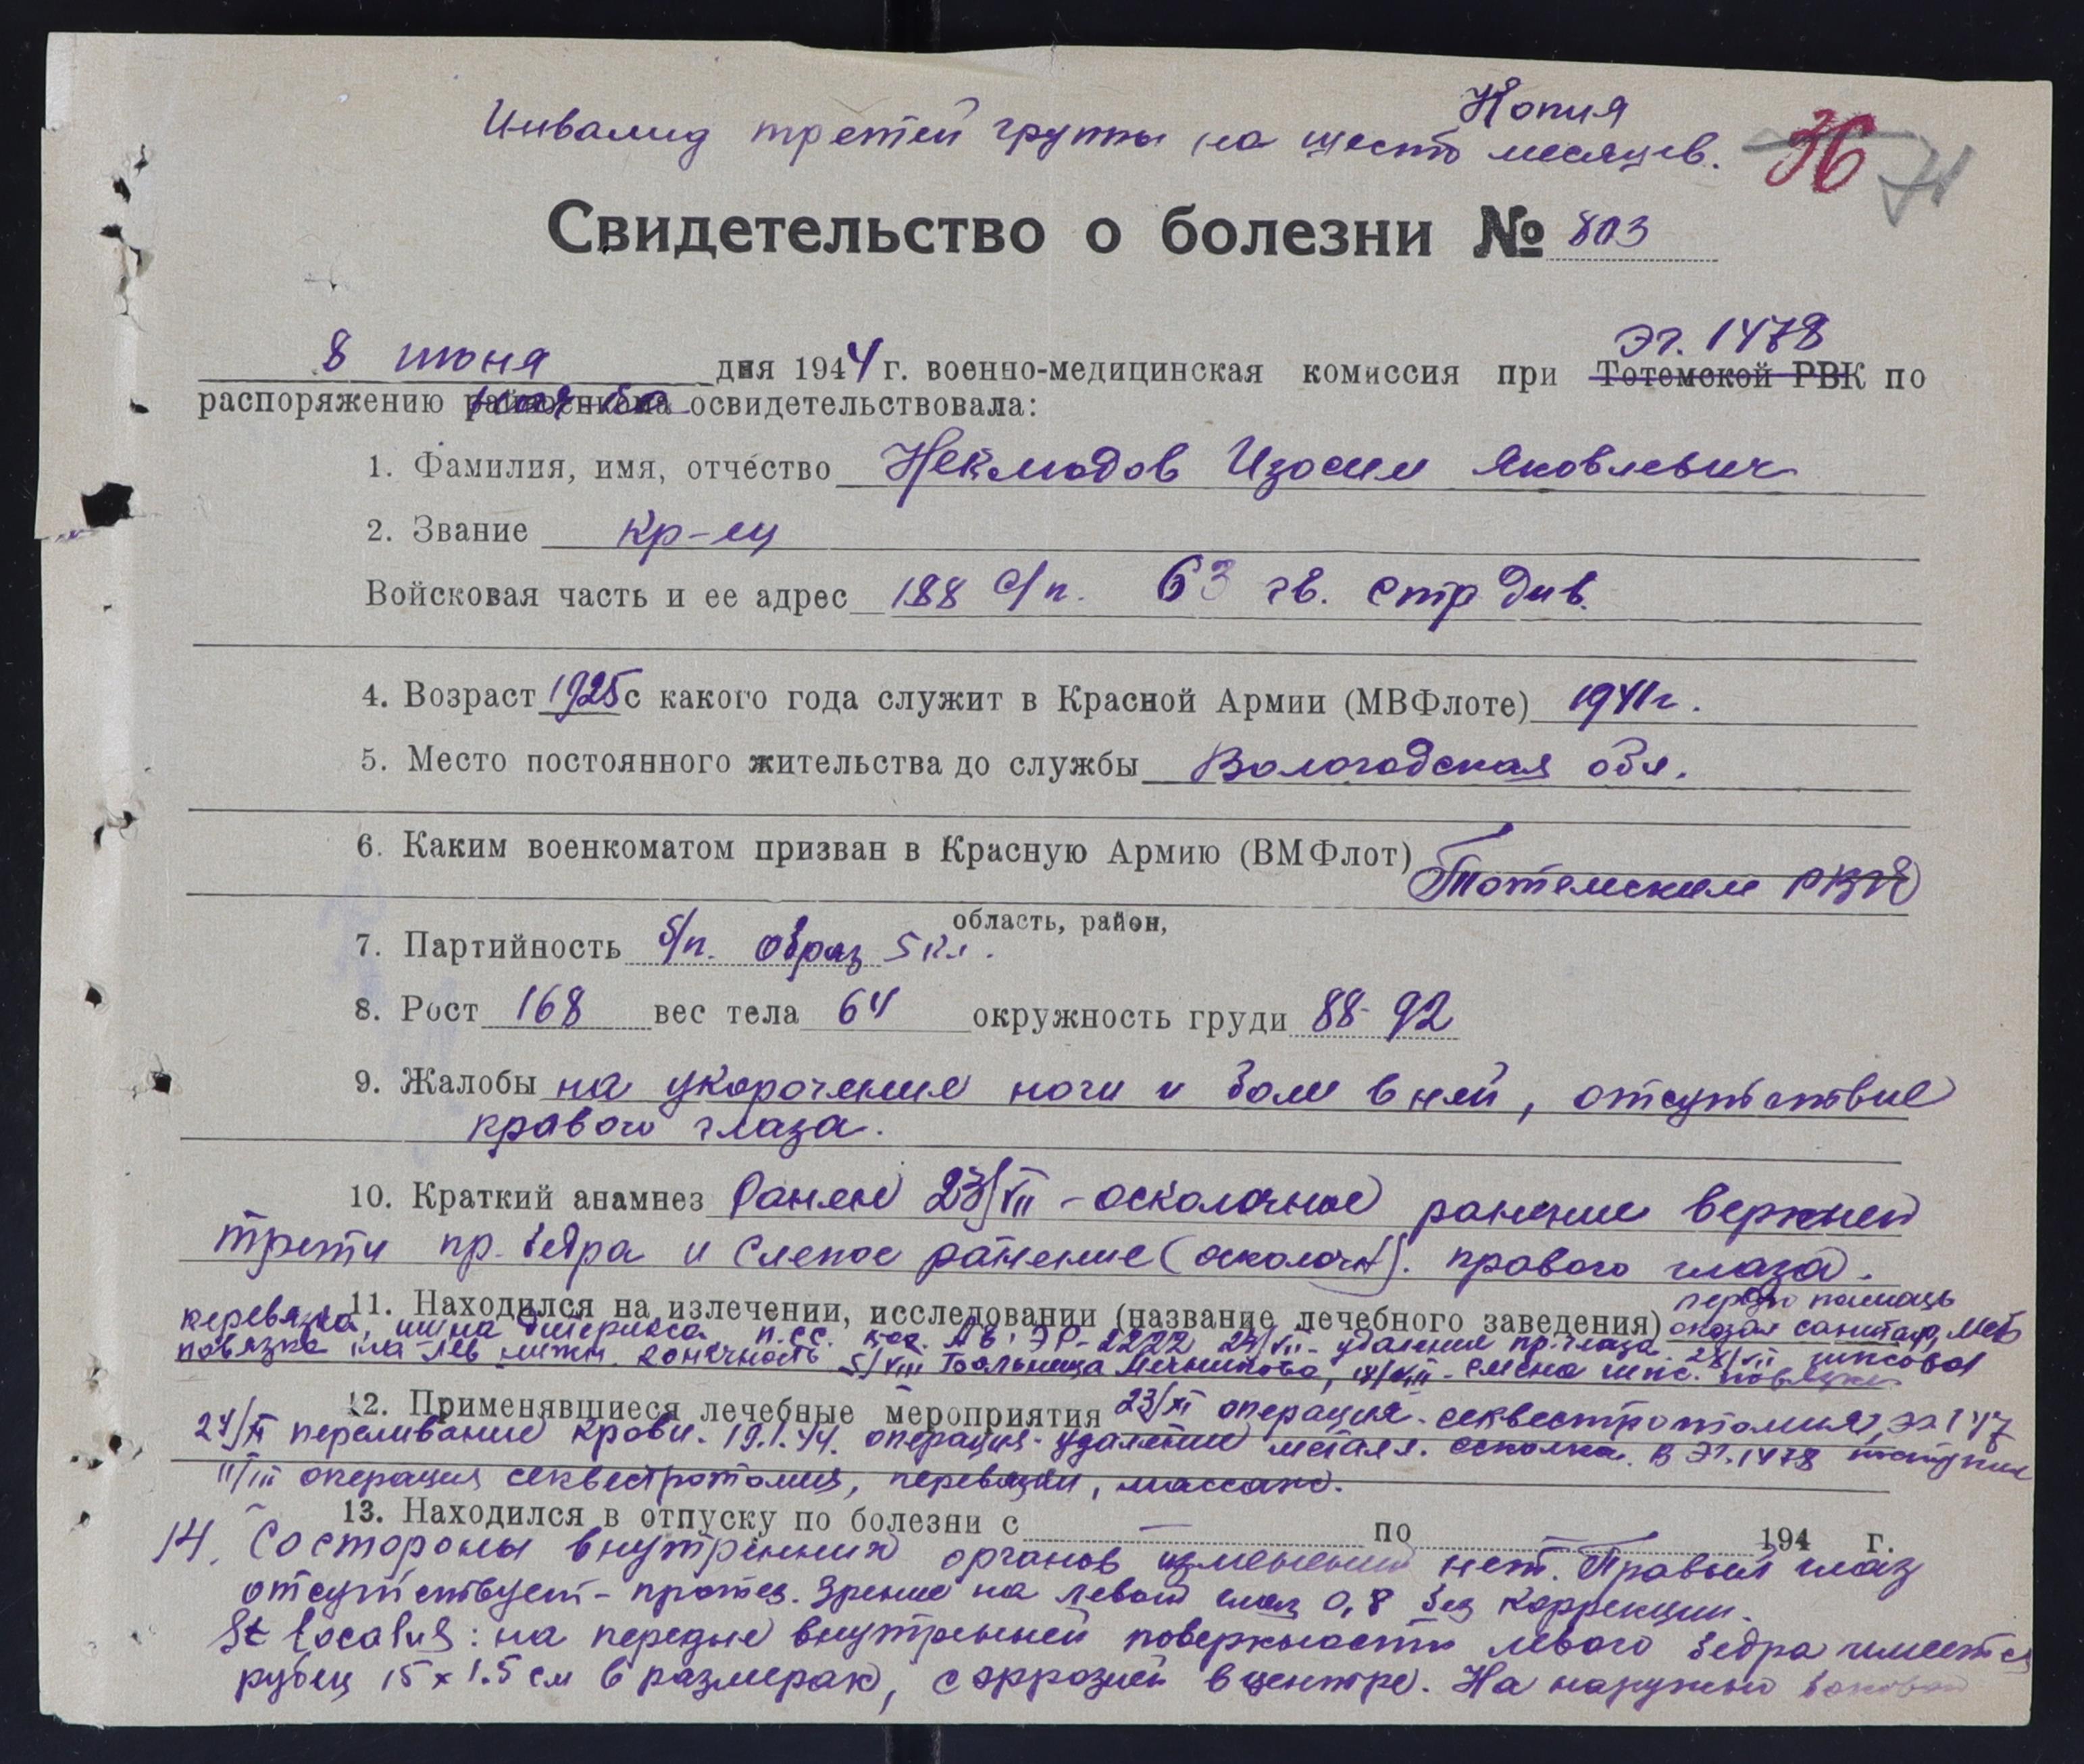 Копия
Инвалид третей группы на шесть месяцев.
Свидетельство о болезни № 803
эг. 1478
8 июня дня 1944 г. военно-медицинская комиссия при Тотемской РВК по
распоряжению освидетельствовала:
1. Фамилия, имя, отчество Неклюдов Изосим Яковлевич
2. Звание кр-ец
Войсковая часть и ее адрес 188 с/п. 63 гв. стр див.
4. Возраст 1925 с какого года служит в Красной Армии (МВФлоте) 1941 г.
5. Место постоянного жительства до службы Вологодская обл.
6. Каким военкоматом призван в Красную Армию (ВМФлот)
Тотемским РВК
область, район,
7. Партийность б/п. образ 5 кл.
8. Рост 168 вес тела 64 окружность груди 88-92
9. Жалобы на укорочение ноги и боли в ней, отсутствие
правого глаза.
10. Краткий анамнез Ранен 23/VII - осколочное ранение верхней
трети пр. бедра и слепое ранение (осколочн). правого глаза.
11. Находился на излечении, исследовании (название лечебного заведения) первую помощь
оказал санитар,
перевязка, шина Дитерихса, п.сс. ЭГ-2222 24/VII - удаление пр. глаза. 28/VII гипсовая
повязка на лев нижн. конечность. 5/VIII Больница Мечникова, смена гипс. повязки
12. Применявшиеся лечебные мероприятия 23/XI операция - секвестротомия, эг 1
24/XI переливание крови. 19.1.44. операция - удаление металл. осколка. В ЭГ. 1478 поступил
11/III операция секвестротомия, перевязки, массаж.
13. Находился в отпуску по болезни с — по — 194 г.
14. Со стороны внутренних органов изменений нет. Правый глаз
отсутствует - протез. Зрение на левый глаз 0,8 без коррекции.
St localus: на передне внутренней поверхности левого бедра имеется
рубец 15 х 1.5 см в размерах, с эррозией в центре. На наружно боковой